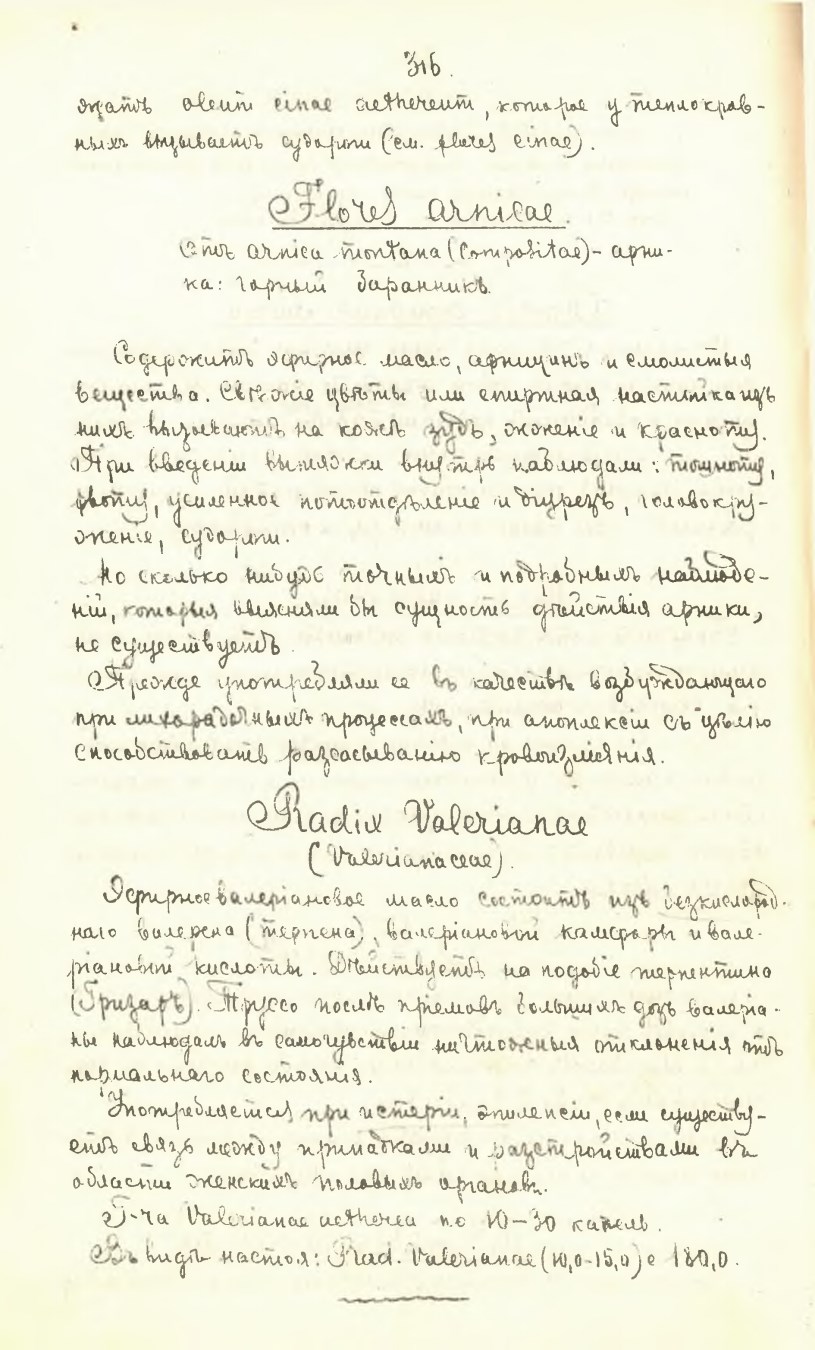 316.
жатъ oleum cinae aethereum, которое у теплокров-
ныхъ вызываетъ судороги (см. flores cinae).
Flores arnicae.
Отъ arnica montana (Compositae) - арни-
ка: горный баранникъ
Содержитъ эфирное масло, арницинъ и смолистыя
вещества. Свѣжіе цвѣты или спиртная настойка изъ
нихъ вызываютъ на кожѣ зудъ, жженіе и красноту.
При введеніи вытяжки внутрь наблюдали: тошноту,
рвоту, усиленное потоотдѣленіе и діурезъ, головокру-
женіе, судороги.
Но сколько нибудь точныхъ и подробныхъ наблюде-
ній, которыя выясняли бы сущность дѣйствія арники,
не существуетъ.
Прежде употребляли ее въ качествѣ возбуждающаго
при лихорадочныхъ процессахъ, при апоплексіи съ цѣлію
способствовать разсасыванію кровоизліянія.
Radix Valerianae
(Valerianaceae).
Эфирное валеріановое масло состоитъ изъ безкислород-
наго валерена (терпена), валеріановой камфоры и вале-
ріановой кислоты. Дѣйствуетъ на подобіе терпентина
(Гризаръ). Труссо послѣ пріемовъ большихъ дозъ валеріа-
ны наблюдалъ въ самочувствіи ничтожныя отклоненія отъ
нормальнаго состоянія.
Употребляется при истеріи, эпилепсіи, если существу-
етъ связь между припадками и разстройствами въ
области женскихъ половыхъ органовъ.
T-ra Valerianae aetherea по 10-30 капель.
Въ видѣ настоя: Rad. Valerianae (10,0-15,0) с 180,0.